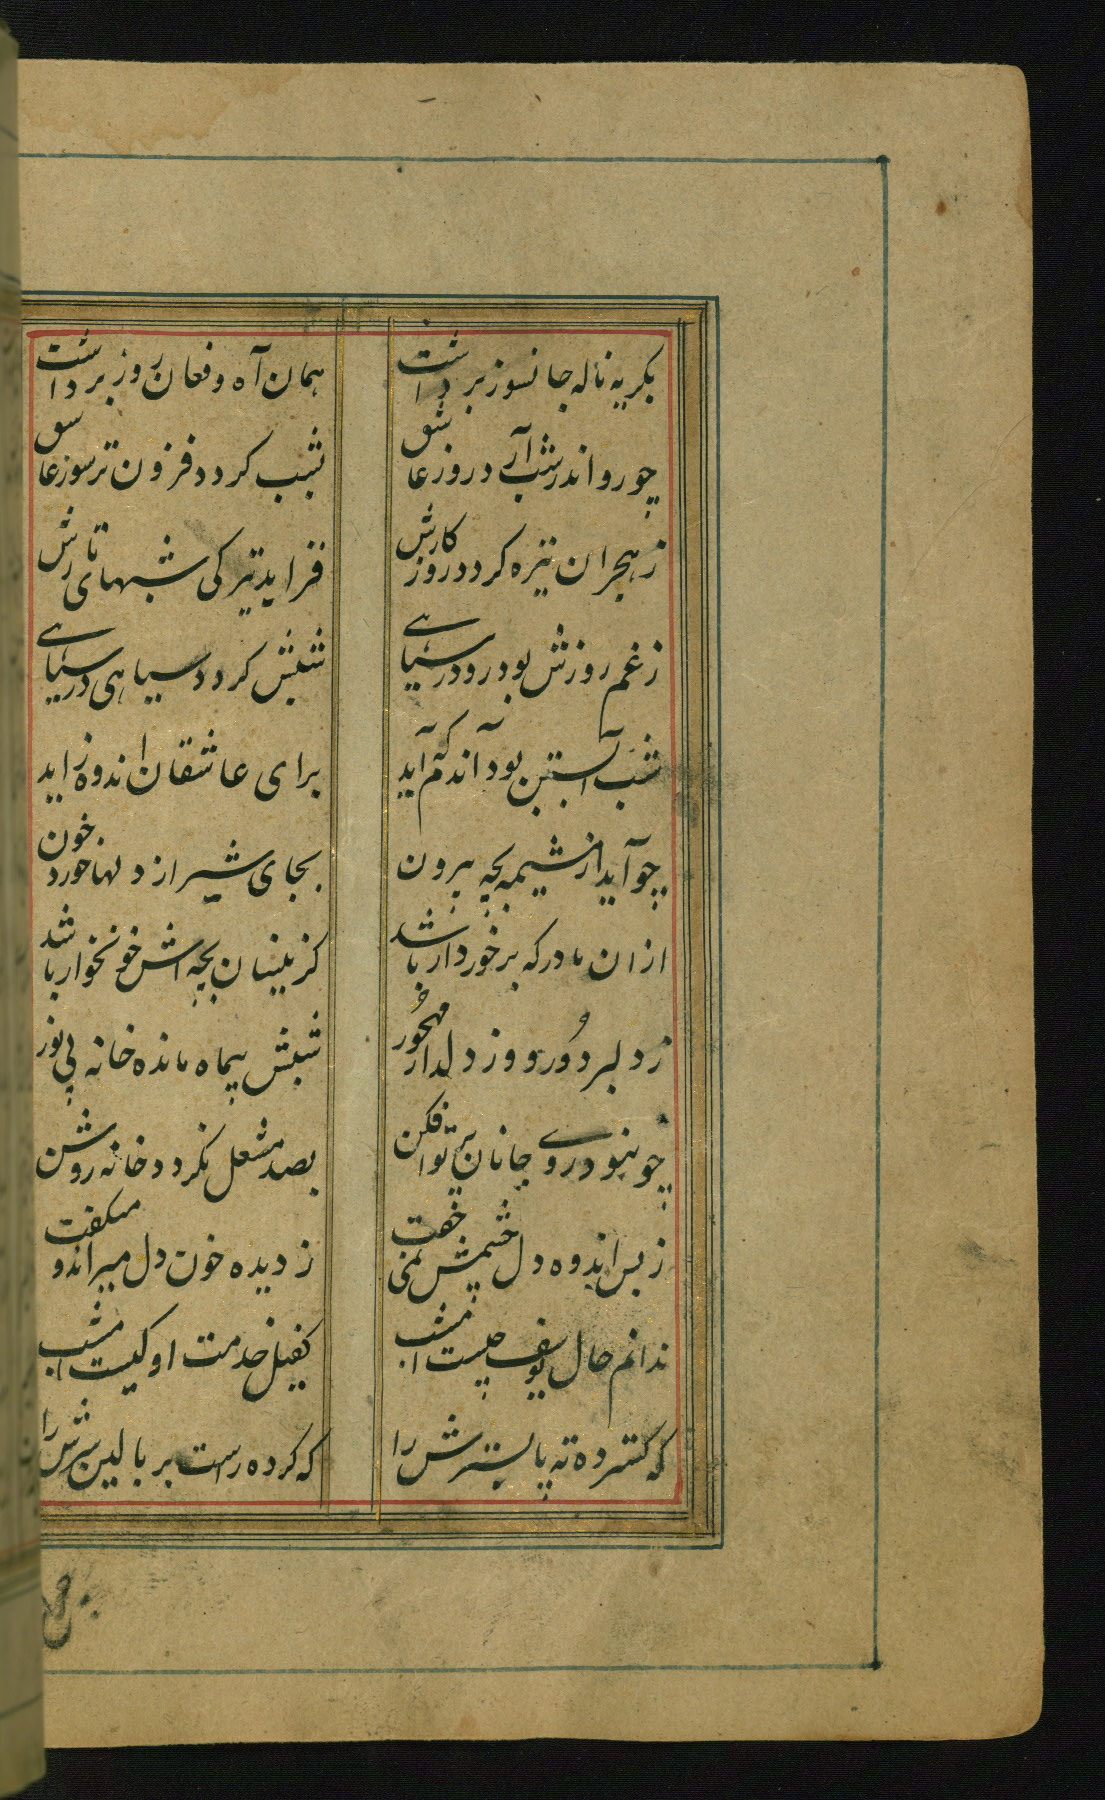 بکریه ناله جانسوز برداشت
همان آه و فغان روز برداشت
چو رو اندر شب آرد روز عاشق
بشب کردد فزون تر سوز عاشق
ز هجران تیره کردد روز کارش
فزاید تیرکی شبهای تارش
ز غم روزش بود رو در سیاهی
شبش کردد سیاهی در سیاهی
شب آبستن بود آندم که آید
برای عاشقان اندوه زاید
چو آید از مشیمه بچه بیرون
بجای شیر از دلها خورد خون
از ان مادر که برخوردار باشد
کزینسان بچه اش خونخوار باشد
ز دلبر دور و وز دلدار مهجور
شبش بیماه مانده خانه بی نور
چو ننبود روی جانان پرتو افکن
بصد مشعل نکردد خانه روشن
ز بس اندوه دل چشمش نمی خفت
ز دیده خون دل میراند و میکفت
ندانم حال یوسف چیست امشب
کفیل خدمت او کیست امشب
که کسترده ته پا بسترش را
که کرده راست بر بالین سرش را